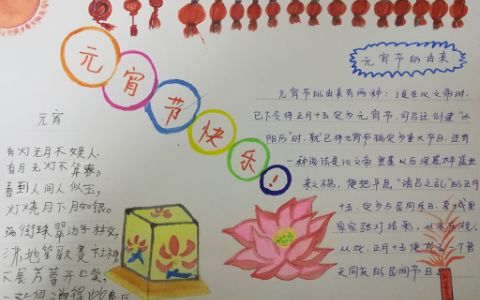 元宵节快乐!
元宵
有灯无月不娱人,
有月无灯不算春。
春到人间人似玉,
灯烧月下月如银。
满街珠翠游村女,
沸地笙歌赛社神。
不展芳尊开口笑,
元宵节的由来
元宵节的由来有两种:1是在汉文帝时,
已下令将正月十五定为元宵节。司马迁创建"太
阳历"时,就已将元宵节确定为重大节日。还有
一种说法是汉文帝
之祸,便把平息"诸吕之乱"的正月
十五,定为与民同乐日,京城里
家家张灯结彩,以示庆祝。
从此,正月十五便成了一个普
天同庆的民间节日。